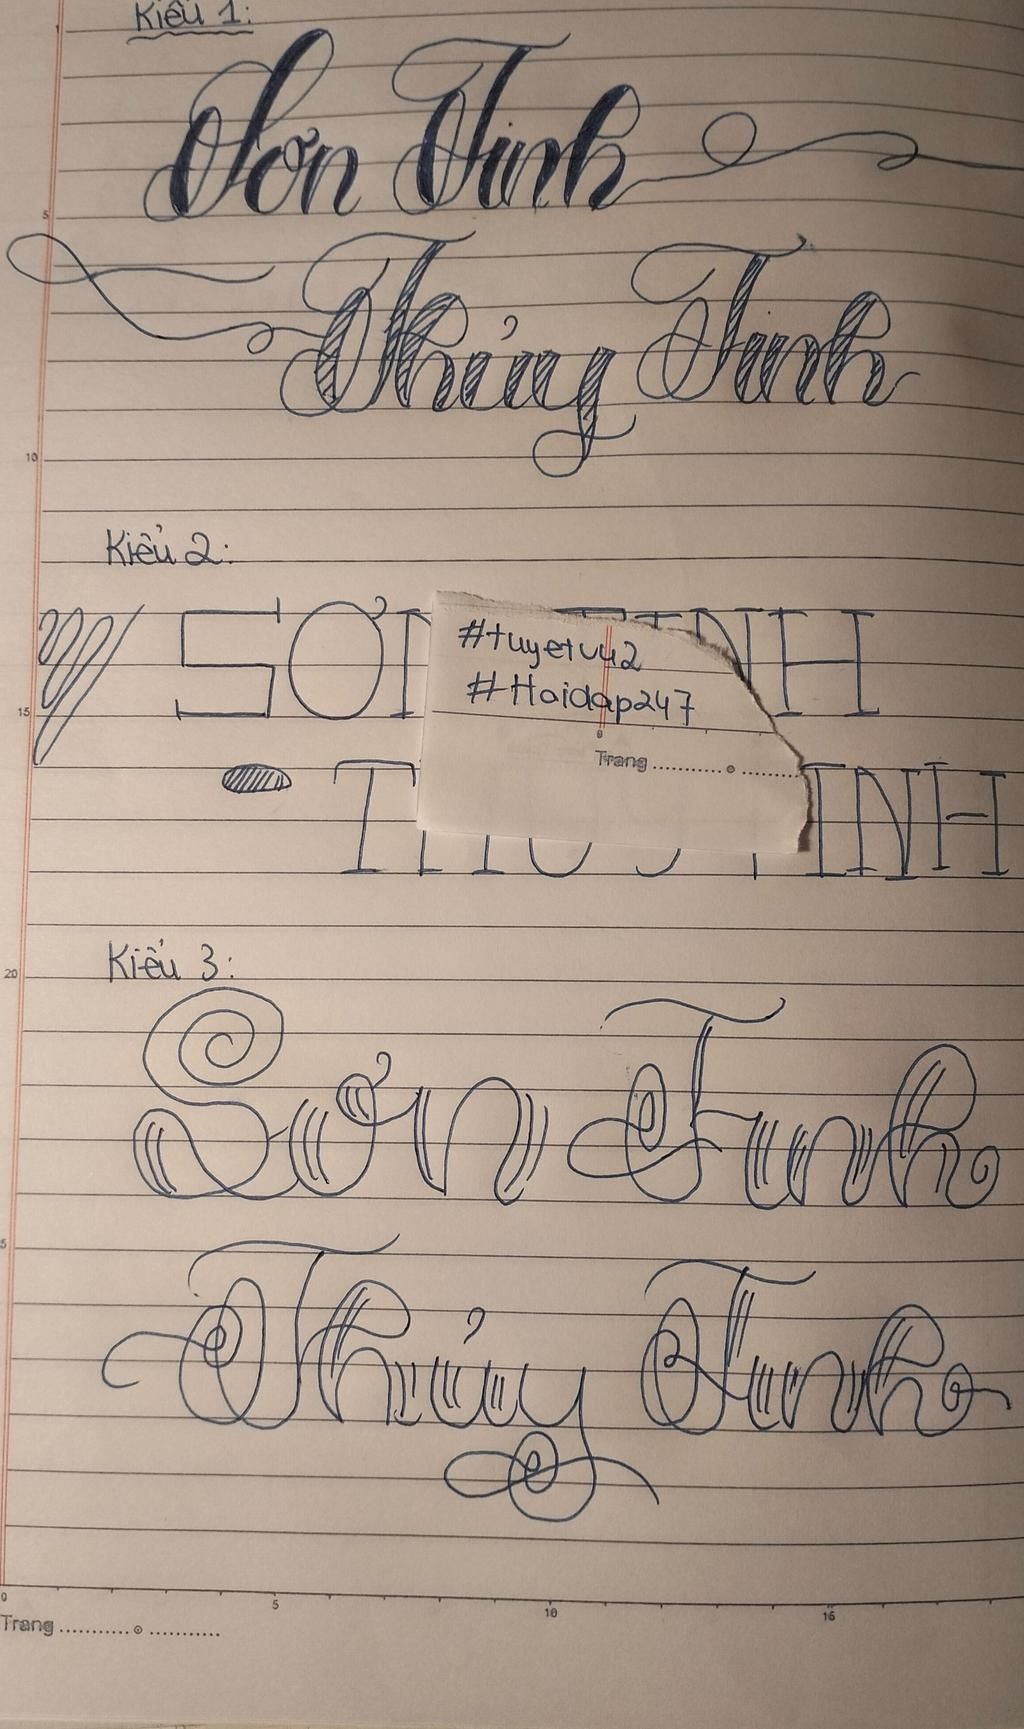 Kiểu 1:
Sơn Tinh
Thủy Tinh
Kiểu 2:
SƠN TINH
#tuyetvu2
#Hoidap247
Trang
TINH
Kiểu 3:
Sơn Tinh
Thủy Tinh
5
10
15
20
5
0
5
10
15
Trang